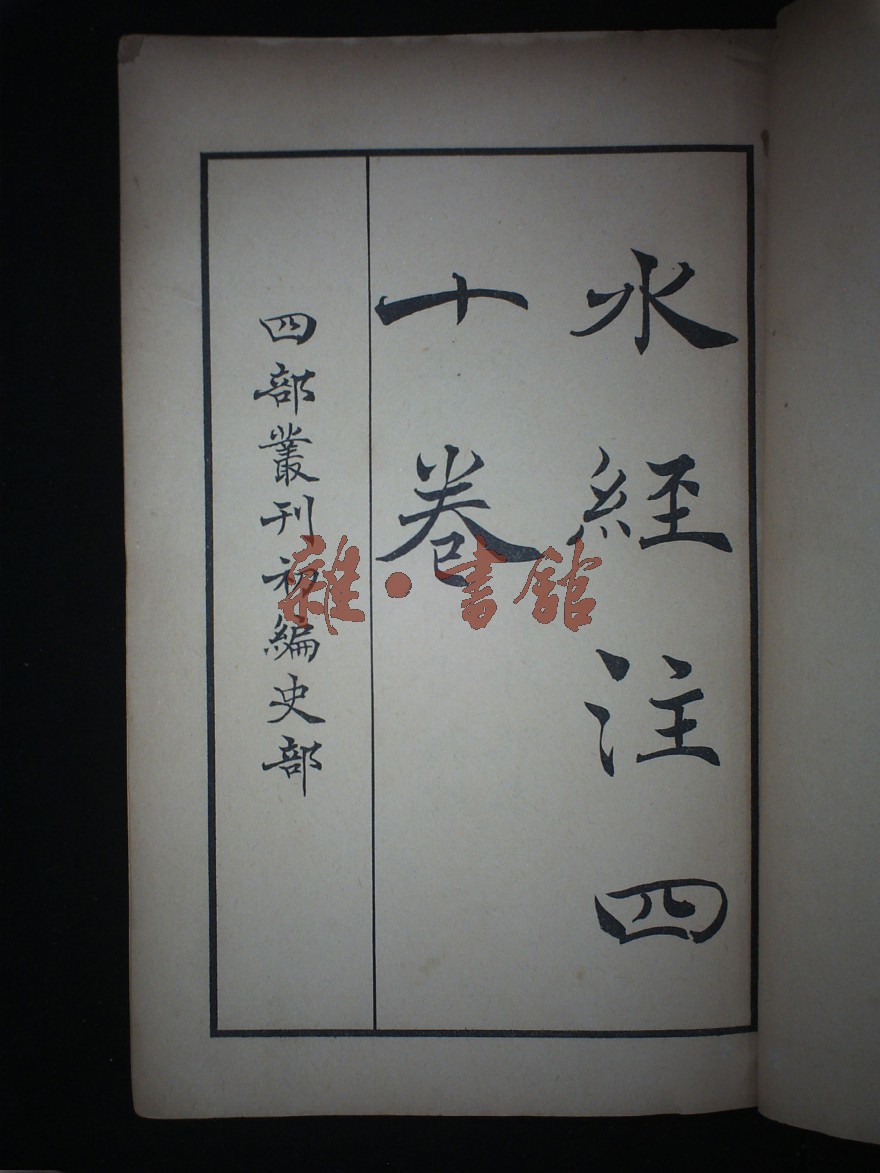 水經注四
十卷
四部叢刊初編史部
雜·書館